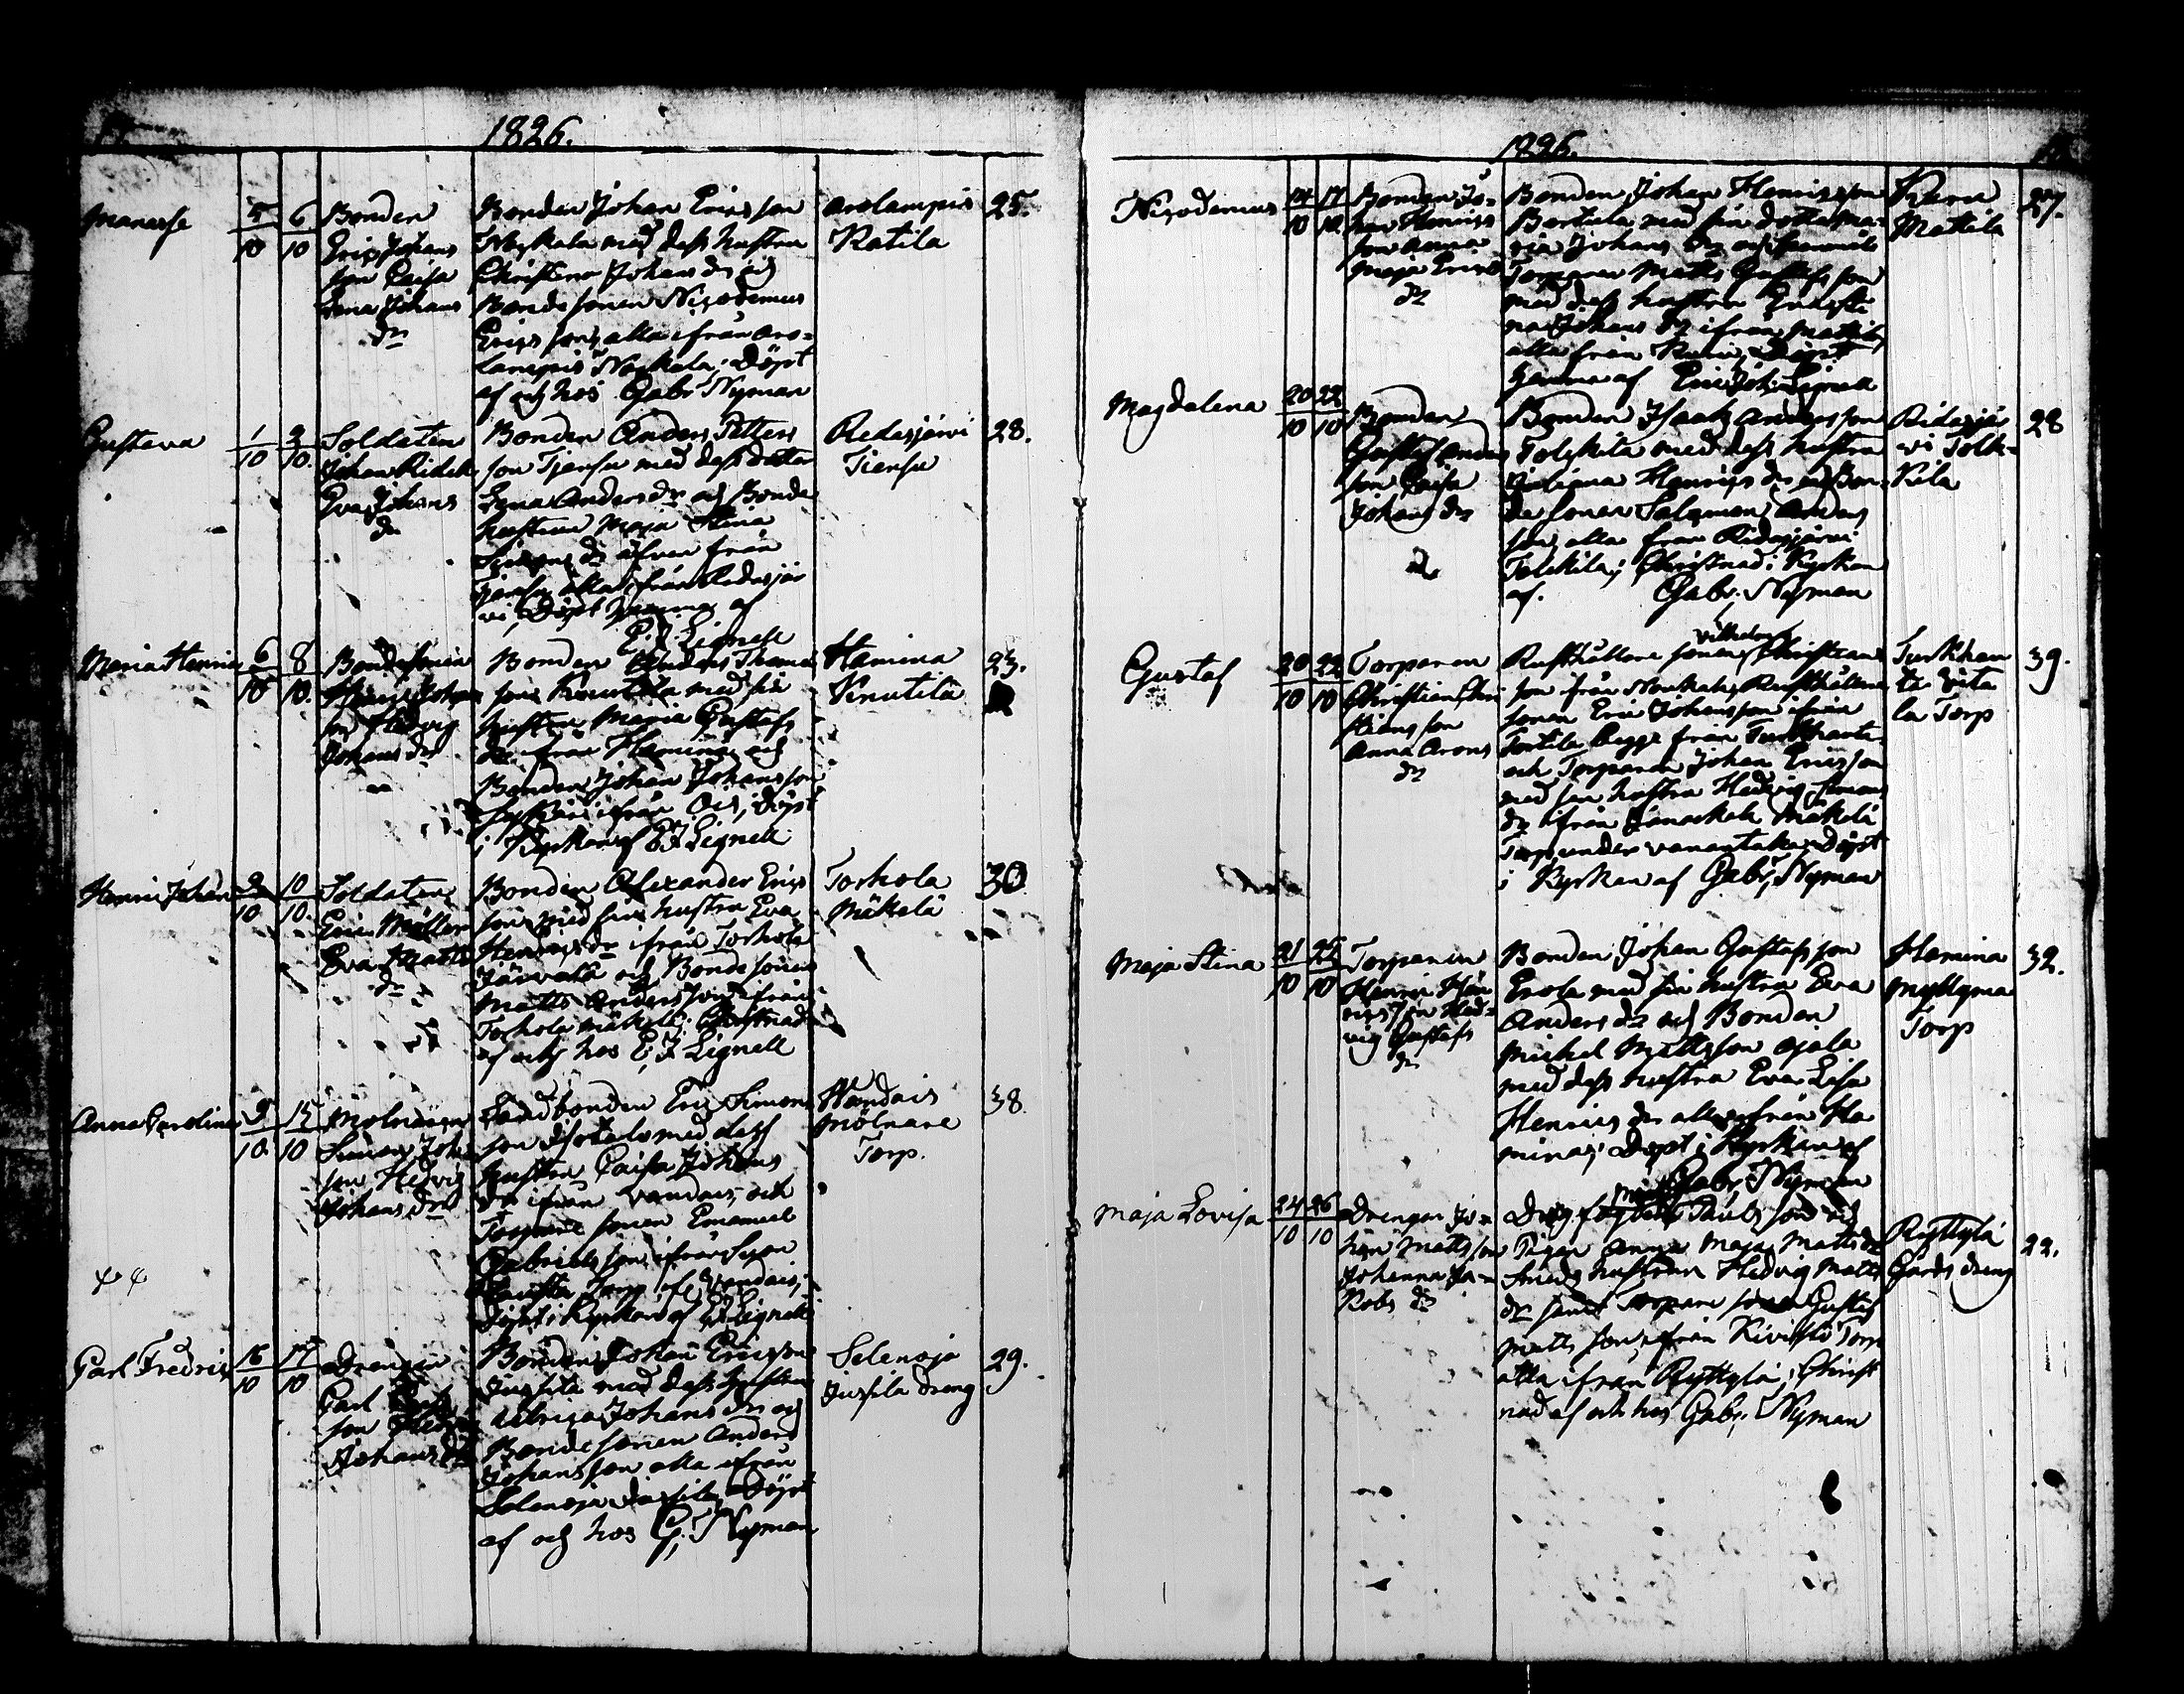 1826.
Manasse
5/10
6/10
Bonden
Erics Johans
son Caisa
Lena Johans
dr
Bonden Johan Erics son
Noykala med dess hustru
Christina Johans dr och
Bonde sonen Nicodemus
Erics son, alla ifrån Aro-
lampis Noykala; Döpt
af och hos Gabr Nyman
Arolampis
Ratila
25.
Gustava
1/10
2/10.
Soldaten
Johan Ridell
Eva Johans
dr
Bonden Anders Petters
son Tjensu med dess dotter
Lena Anders dr och Bonde
hustrun Maja Stina
Simons dr äfven från
Tjensu alla ifrån Ridasjär
vi, Döpt hemma af
E. J. Lignell
Ridasjärvi
Tiensu
28.
Maria Henrica
6/10
8/10.
Bondesonen
Johan
son Hedvig
Johans dr
Bonden Anders Thomas
son Knutila med sin
hustru Maria Gustafs
dr från Hamina och
Bonden Johan Johansson
ifrån Ois, döpt
i Kyrkan af E J Lignell
Hamina
Knutila
23.
Henric Johan
9/10
10/10.
Soldaten
Eric Möller
Eva Matts
dr
Bonden Alexander Erics
son med sin hustru Eva
Henrics dr ifrån Torhola
Järvelä och Bondesonen
Matts Anders son ifrån
Torhola Mäkelä; Christnad
af och hos E. J. Lignell
Torhola
Mäkelä
30.
Anna Carolina
9/10.
15/10
Molnaren
Simon Joh.
son Hedvig
Johans dr
Landbonden Eric Simons
son Isotalo med dess
hustru Caisa Johans
dr ifrån Vandais; och
Torpare sonen Emanuel
Gabriels son ifrån
Torp af Vandais;
döpt i Kyrkan af E J Lignell
Wandais
Mölnare
Torp.
38.
Carl Fredric
16/10
17/10
Drengen
Carl
son
Johans dr
Bonden Johan Ericsson
Jussila med dess hustru
Ulrica Johans dr och
Bondesonen Anders
Johansson alla ifrån
Selenoja Jussila, Döpt
af och hos G. Nyman
Selenoja
Jussila dreng
29.
1826.
Nicodemus
14/10
17/10
Bonden Jo-
han Henrics
son Anna
Maja Erics
dr
Bonden Johan Henricsson
Bertula med sin dotter Ma-
ria Johans dr och
Torparen Matts Gustafs son
med dess hustru Ernesti
na Johans dr ifrån Mattila,
alla från Karu, Döpt
hemma af Eric Joh: Lignell
Karu
Mattila
27.
Magdalena
20/10
22/10
Bonden
Gustaf Anders
son Caisa
Johans dr
Bonden Isack Andersson
Tolkkila med dess hustru
Juliana Henrics dr och Bon
de sonen Salomon Anders
son, alla från Ridasjärvi
Tolkkila; Christnad i Kyrkan
af. Gabr. Nyman
Ridasjär
vi Tolk-
kila
28
Gustaf
20/10
22/10
Torparen
Christian Chri
stians son
Anna Arons
dr
Rusthållare sonen Vilhelm Christians
son från Noukala, Rusthållare
sonen Eric Johansson ifrån
Tortila begge från Turkhauta
och Torparen Johan Ericsson
med sin hustru Hedvig Simons
dr ifrån Janackala Mäkelä
Torp under Vanantaka, Döpt
i Kyrkan af Gabr: Nyman
Turkhau
ta
la Torp
39.
Maja Stina
21/10
22/10
Torparen
Henric Hen
rics son Hed-
vig Gustafs
dr
Bonden Johan Gustafs son
Erola med sin hustru Eva
Anders dr och Bonden
Michel Mattsson Ojala
med dess hustru Eva Lisa
Henrics dr alla ifrån Ha
mina; Döpt i Kyrkan af
Gabr: Nyman
Hamina
Myllymä
Torp
32.
Maja Lovisa
24/10
26/10
Drengen Jo-
han Matts son
Johanna Ja-
kobs dr
Pauls son och
Pigan Anna Maja Matts dr
Smeds hustrun Hedvig Matts
dr samt Torpare sonen Gustaf
Matts son ifrån Kivistö Torp
alla ifrån Ryttylä; Christ
nad af och hos Gabr: Nyman
Ryttylä
Gards dreng
22.